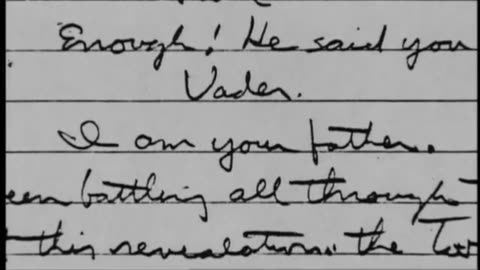 Enough! He said you
Vader.
I am your father.
een battling all through
this revealation. the